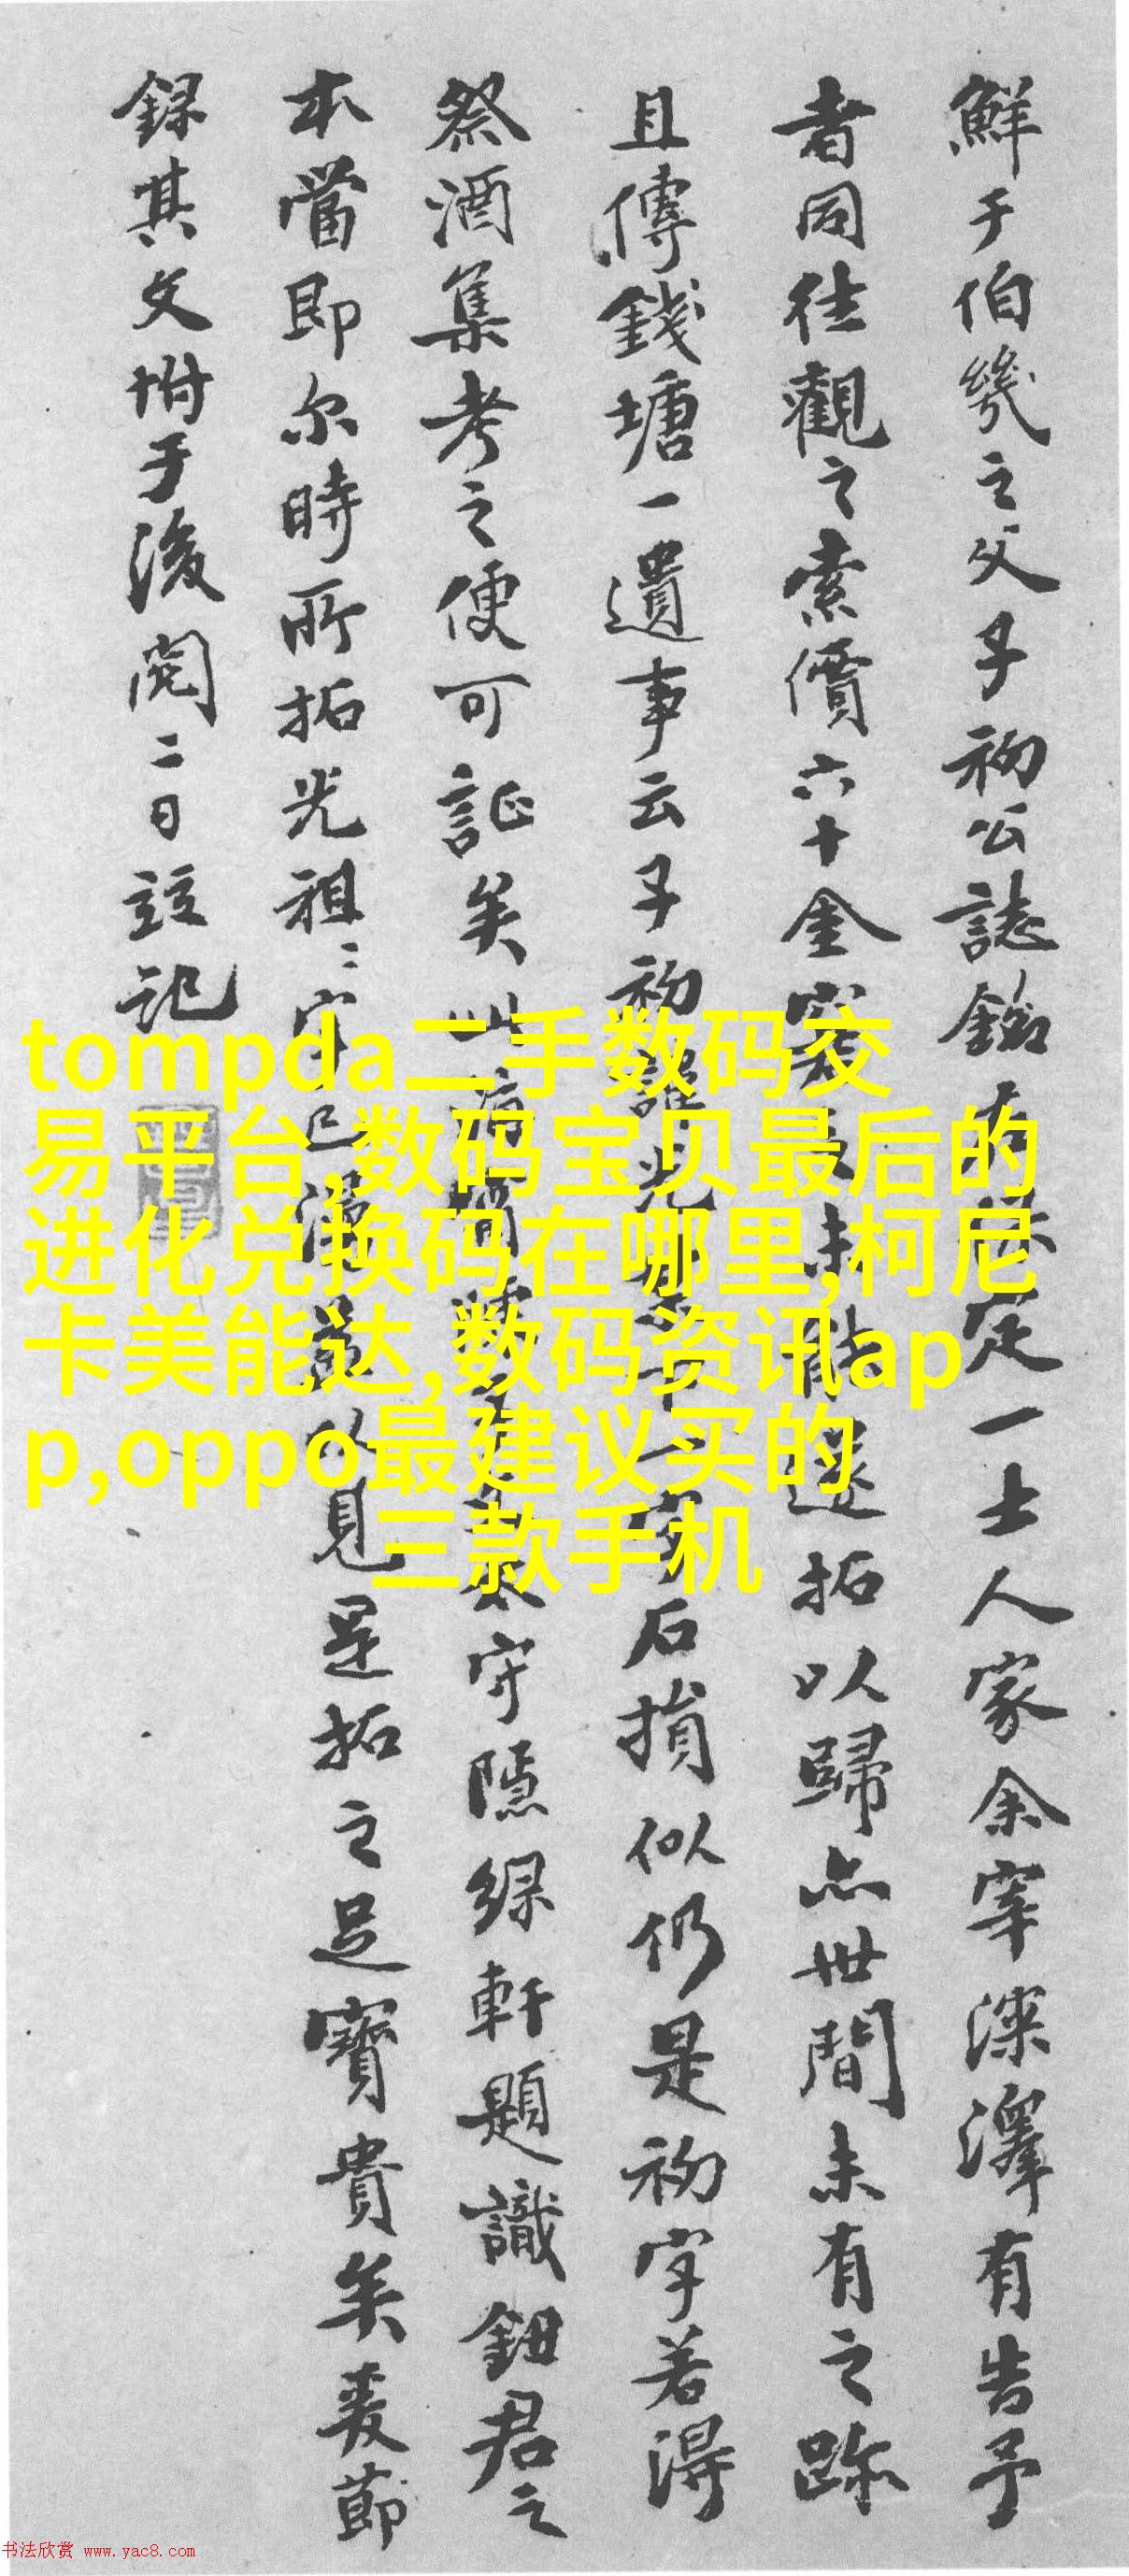 鮮于伯幾之父子初公誌銘定一士人家余宰深澤有告予
者同往觀之索價六十金未拓以歸亦世間未有之跡
且傳錢塘一遺事云子初諱光一字石損似仍是初字若得
祭酒集考之便可証矣此守隱綠軒題識鈕君之
本當即尔時所拓光祖二字已漫以見是拓之足寶貴矣爰節
錄其文坿于後閱二日記
tompda二手数码交
易平台,数码宝贝最后的
进化兑换码在哪里,柯尼
卡美能达,数码资讯ap
p,oppo最建议买的
三款手机
书法欣赏 www.yac8.com